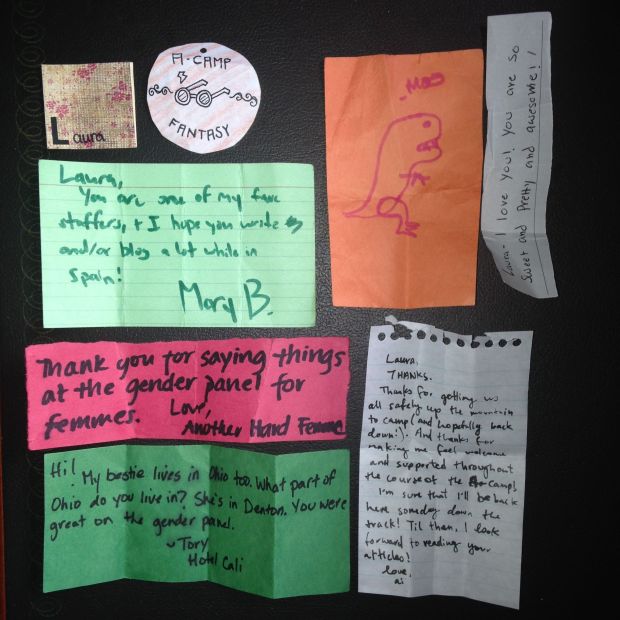 Laura
A-CAMP
FANTASY
Laura - I love you! You are so
sweet and pretty and awesome!
Laura,
You are one of my fave
staffers, + I hope you write
and/or blog a lot while in
Spain!
Mary B.
Thank you for saying things
at the gender panel for
femmes.
Love,
Another Hard Femme
Hi! My bestie lives in Ohio too. What part of
Ohio do you live in? She's in Denton. You were
great on the gender panel.
~Tory
Hotel Cali
Laura,
THANKS.
Thanks for getting us
all safely up the mountain
to camp (and hopefully back
down!). And thanks for
making me feel welcome
and supported throughout
the course of the camp!
I'm sure that I'll be back
here someday down the
track! Til then, I look
forward to reading your
articles!
love,
ai